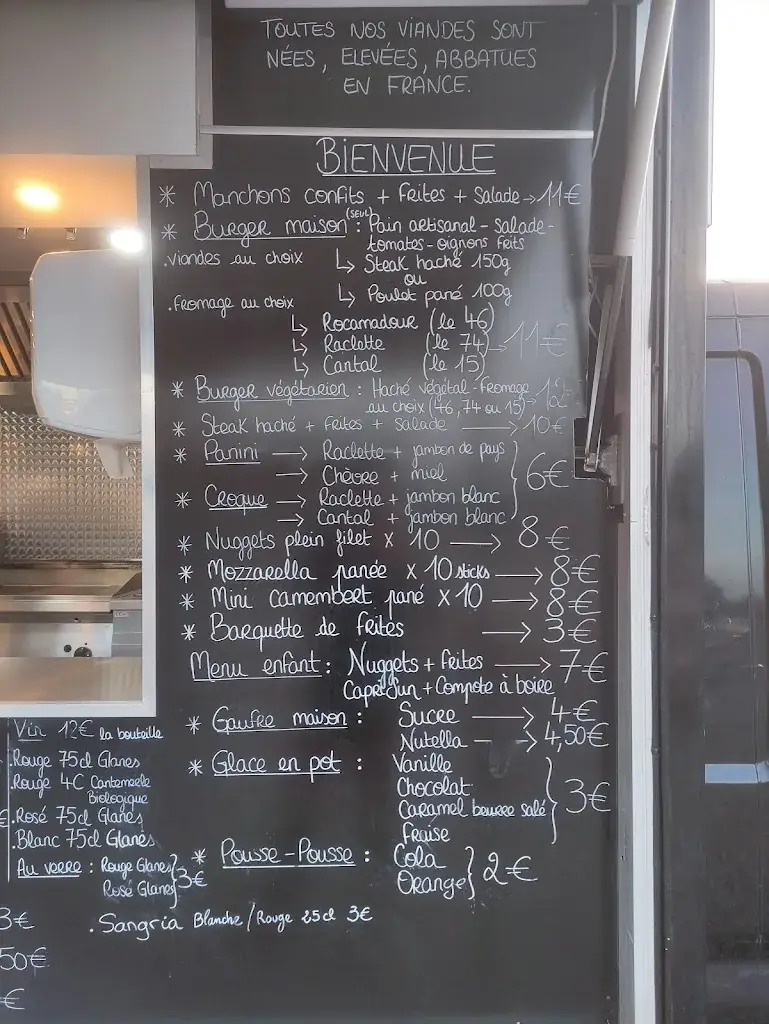 TOUTES NOS VIANDES SONT
NÉES, ELEVÉES, ABBATUES
EN FRANCE.
BIENVENUE
* Manchons confits + Frites + Salade → 11€
* Burger maison (SEUL) : Pain artisanal - salade -
tomates - oignons frits
.viandes au choix ↳ Steak haché 150g
ou
↳ Poulet pané 100g
.fromage au choix
↳ Rocamadour (le 46)
↳ Raclette (le 74) → 11€
↳ Cantal (le 15)
* Burger végétarien : Haché végétal - fromage
au choix (46, 74 ou 15) → 12
* Steak haché + Frites + Salade → 10€
* Panini → Raclette + jambon de pays
→ Chèvre + miel } 6€
* Croque → Raclette + jambon blanc
→ Cantal + jambon blanc
* Nuggets plein filet x 10 → 8€
* Mozzarella panée x 10 sticks → 8€
* Mini camembert pané x 10 → 8€
* Barquette de frites → 3€
Menu enfant : Nuggets + frites → 7€
Capri Sun + Compote à boire
* Gaufre maison : Sucre → 4€
Nutella → 4,50€
* Glace en pot : Vanille
Chocolat
Caramel beurre salé } 3€
Fraise
* Pousse-Pousse : Cola
Orange } 2€
Vin 12€ la bouteille
.Rouge 75cl Glanes
.Rouge 4C Cantemerle
Biologique
.Rosé 75cl Glanes
.Blanc 75cl Glanes
Au verre : Rouge Glanes
Rosé Glanes } 3€
.Sangria Blanche / Rouge 25cl 3€
3€
50€
€